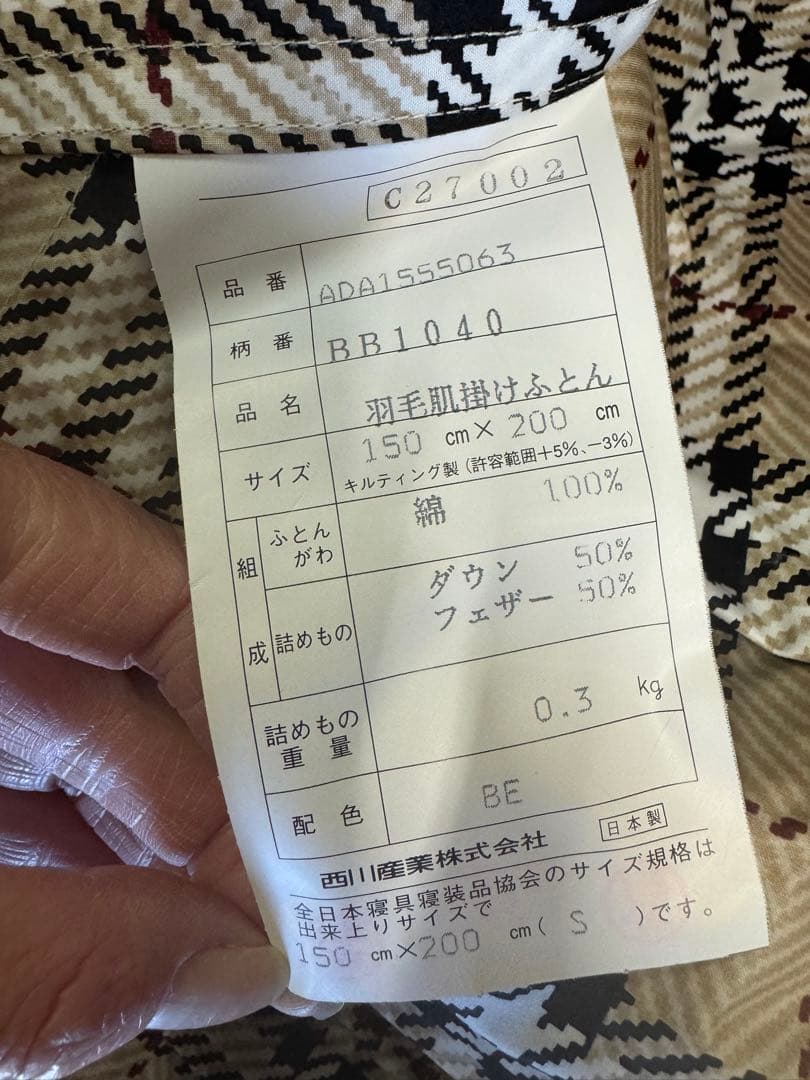 C27002
品番 ADA1555063
柄番 BB1040
品名 羽毛肌掛けふとん
サイズ 150 cm × 200 cm
キルティング製(許容範囲+5%、-3%)
組成 ふとんがわ 綿 100%
詰めもの ダウン 50%
フェザー 50%
詰めもの重量 0.3 kg
配色 BE
西川産業株式会社 日本製
全日本寝具寝装品協会のサイズ規格は
出来上りサイズで
150 cm×200 cm( S )です。